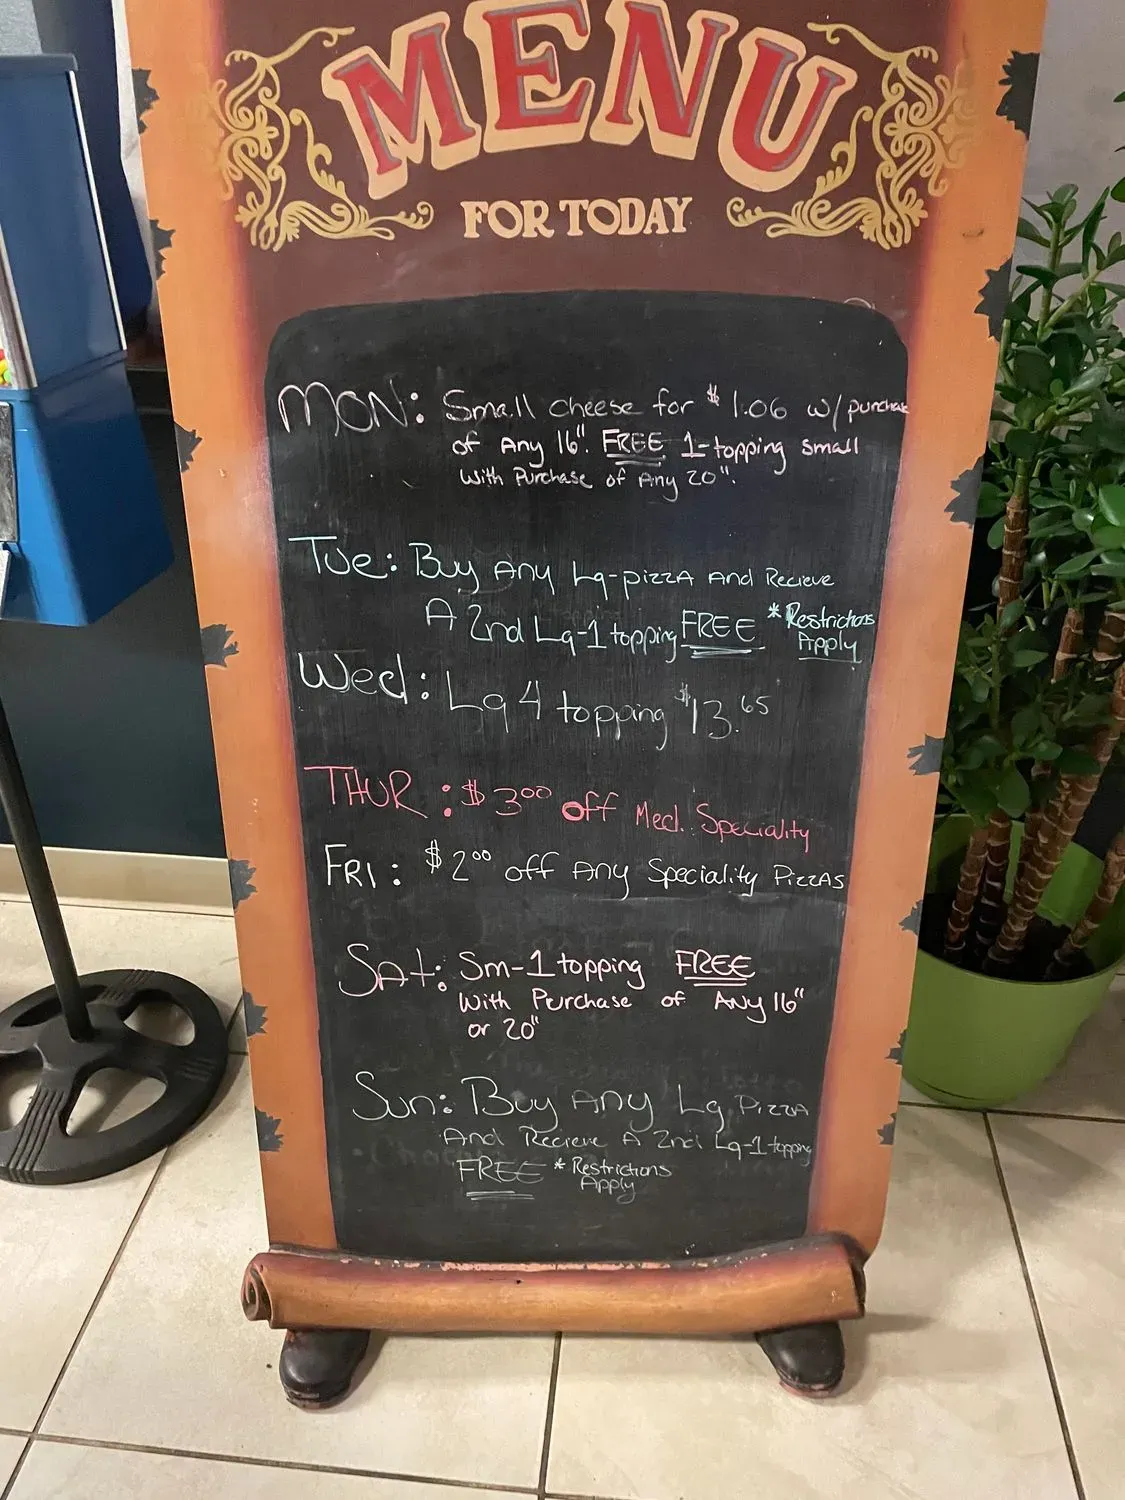 MENU
FOR TODAY
MON: Small cheese for $1.06 w/ purchase
of Any 16". FREE 1-topping small
with Purchase of Any 20".
Tue: Buy Any Lg-pizzA And Recieve
A 2nd Lg-1 topping FREE *Restrictions
Apply
Wed: Lg 4 topping $13.65
THUR: $3.00 off Med. Speciality
FRI: $2.00 off Any Speciality PizzAs
SAt: Sm-1 topping FREE
with Purchase of Any 16"
or 20"
Sun: Buy Any Lg PizzA
And Recieve A 2nd Lg-1 topping
FREE *Restrictions
Apply